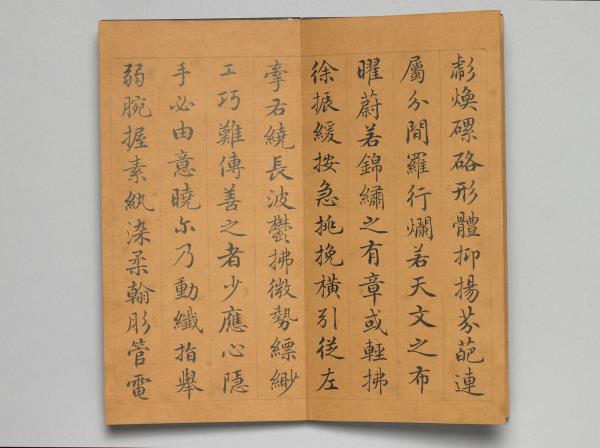 彪煥磥硌形體抑揚芬葩連
屬分間羅行爛若天文之布
曜蔚若錦繡之有章或輕拂
徐振緩按急挑挽橫引從左
牽右繞長波鬱拂微勢縹緲
工巧難傳善之者少應心隱
手必由意曉尓乃動纖指舉
弱腕握素紈染柔翰彤管電